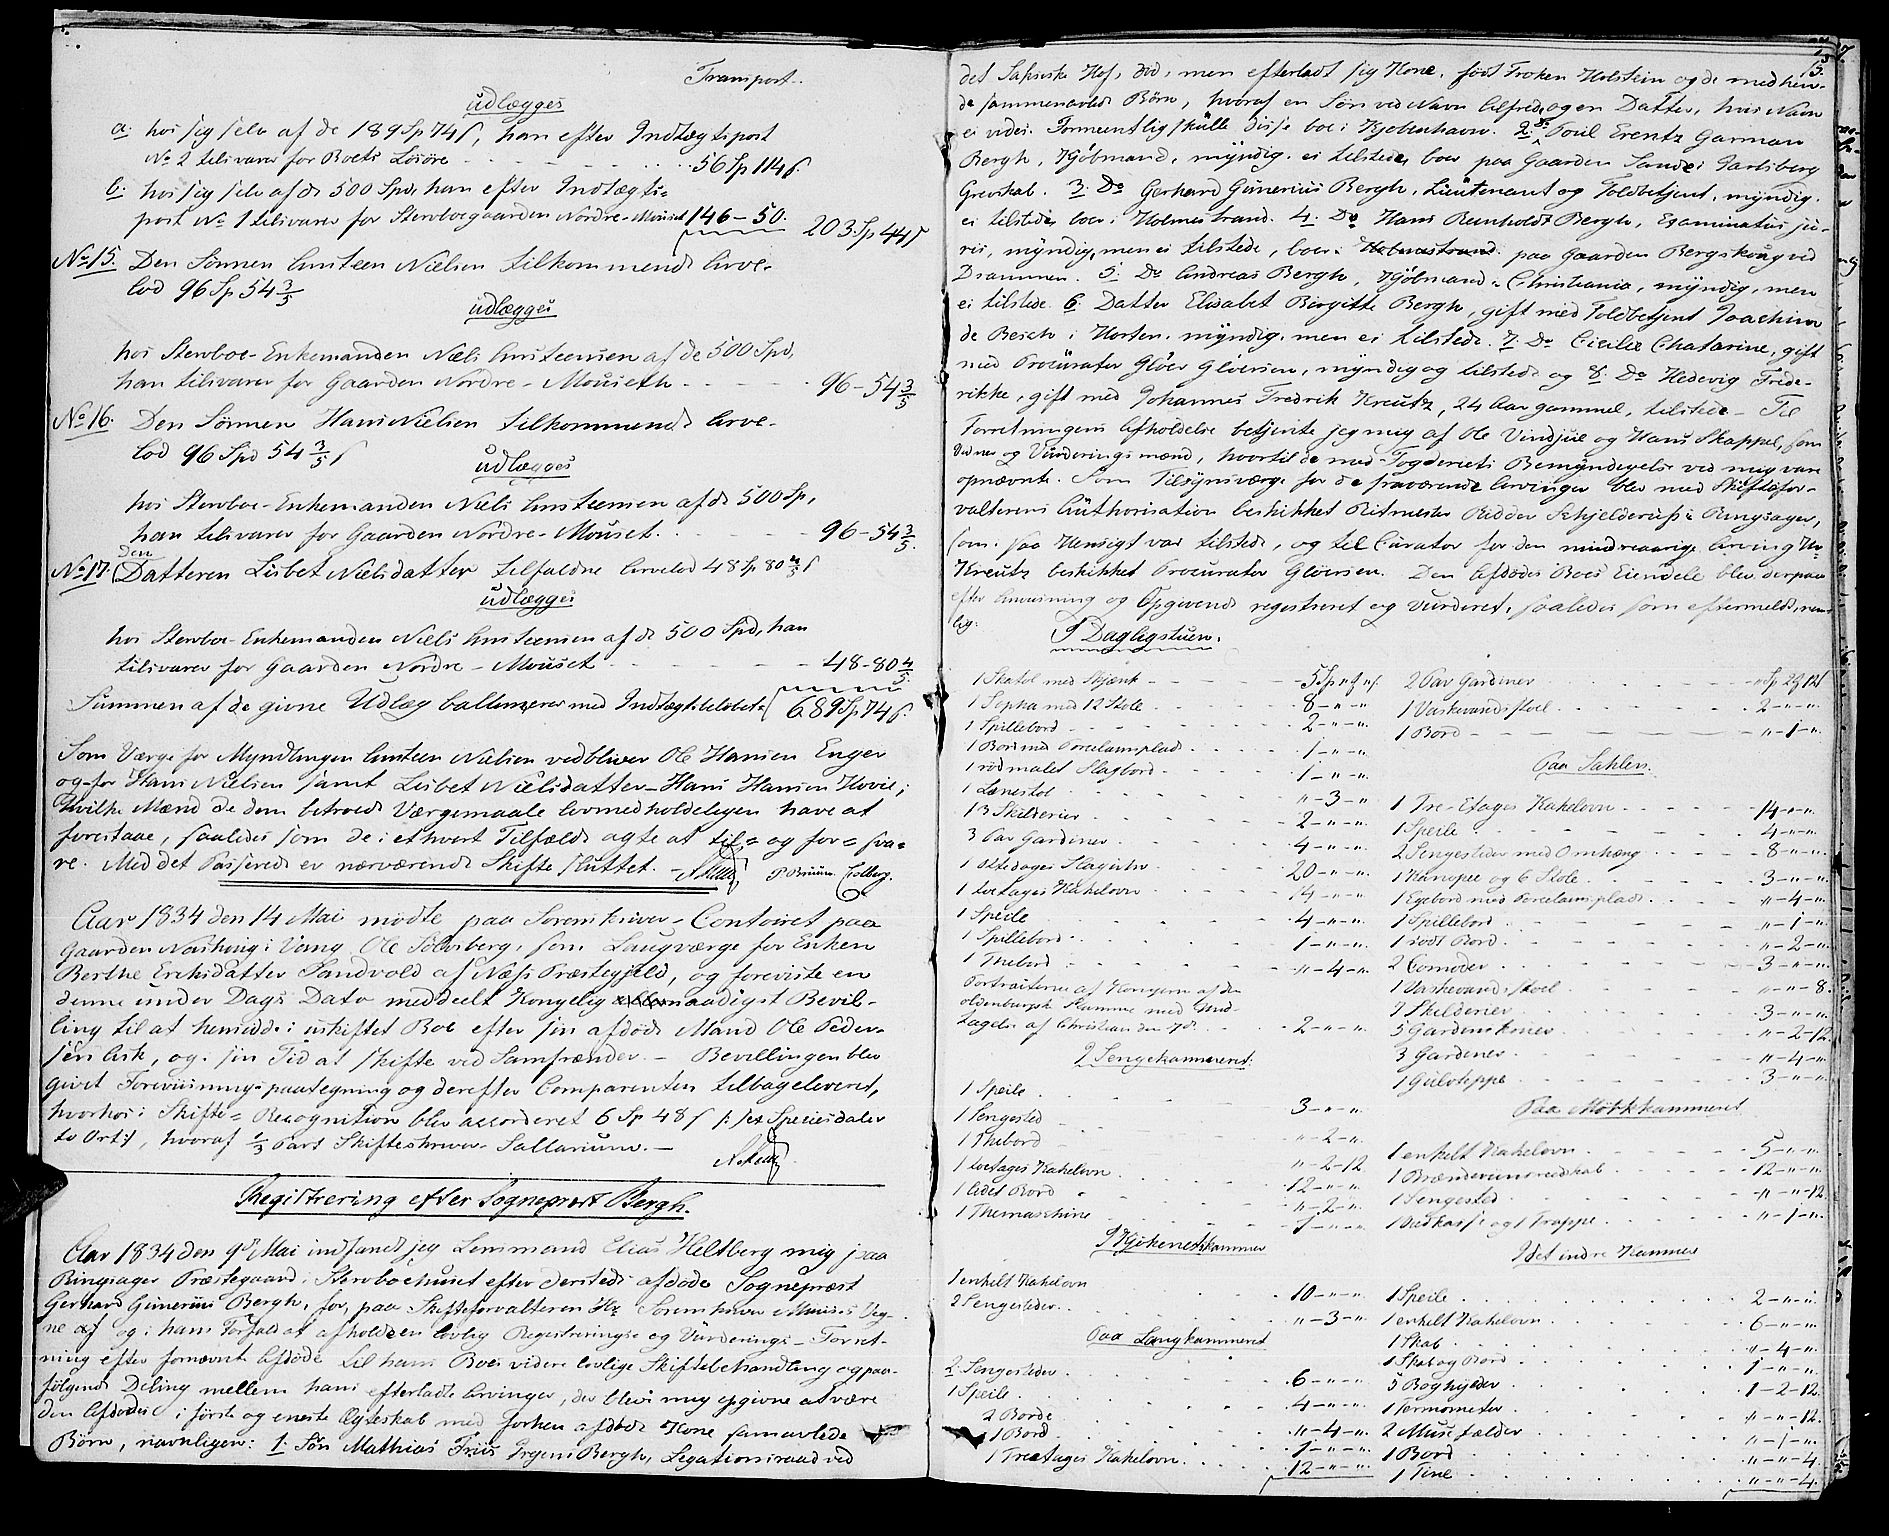 Transport.
udlægges
a. hos sig selv af de 189 Sp 74 s, han efter Indtægtspost
No 2 tilsvarer for Boets Løsøre 56 Sp 114 s.
b. hos sig selv af de 500 Spd, han efter Indtægts=
post No 1 tilsvarer for Stervboegaarden Nordre-Mouset 146-50. 203 Sp 44 s
No 15. Den Sønnen Amsteen Nielsen tilkommende Arve-
lod 96 Sp 54 3/5
udlægges
hos Stervboe-Enkemanden Niels Amsteensen af de 500 Spd,
han tilsvarer for Gaarden Nordre-Mouseth 96-54 3/5
No 16. Den Sønnen Hans Nielsen tilkommende Arve-
lod 96 Spd 54 3/5 s
udlægges
hos Stervboe-Enkemanden Niels Amsteensen af de 500 Sp,
han tilsvarer for Gaarden Nordre-Mouset. 96-54 3/5.
den
No 17. Datteren Lisbet Nielsdatter tilfaldne Arvelod 48 Sp 80 4/5 s
udlægges
hos Stervboe-Enkemanden Niels Amsteensen af de 500 Spd, han
tilsvarer for Gaarden Nordre-Mouset 48-80 4/5.
Summen af de givne Udlæg ballancerer med Indtægtsbeløbet = 689 Sp 74 s.
Som Værge for Myndlingen Amsteen Nielsen vedbliver Ole Hansen Enger
og for Hans Nielsen samt Lisbet Nielsdatter-Hans Hansen Hovie;
hvilke Mænd de dem betroede Værgemaale lovmedholdeligen have at
forestaae, saaledes som de i ethvert Tilfælde agte at til= og for= sva=
re. Med det Passerede er nærværende Skifte sluttet. P. Bruun. Estberg.
Aar 1834 den 14 Mai mødte paa Sorenskriver-Contoiret paa
Gaarden Nashaug i Vang Ole Solberg, som Laugværge for Enken
Berthe Erichsdatter Sandvold af Næss Præstegjeld, og foreviste en
denne under Dags Dato meddeelt Kongelig allernaadigst Bevil-
ling til at hensidde i uskiftet Boe efter sin afdøde Mand Ole Peder-
sen Ask, og i sin Tid at skifte ved Samfrænder. - Bevillingen blev
givet Foreviisnings-paategning og derefter Comparenten tilbageleveret,
hvorhos i Skifte = Recognition blev accorderet 6 Sp 48 s p: sex Speciesdaler
to Ort :/, hvoraf 1/3 Part Skifteskriver-Sallarium. -
Registrering efter Sognepræst Bergh.
Aar 1834 den 9de Mai indfandt jeg Lensmand Elias Heltberg mig paa
Ringsager Præstegaard i Stervboehuset efter dersteds afdøde Sognepræst
Gerhard Gunerius Bergh, for, paa Skifteforvalteren Hr Sorenskriver Veg-
ne af og i hans Forfald at afholde en lovlig Registrerings og Vurderings-Forret-
ning efter fornævnte Afdøde til hans Boes videre lovlige Skiftebehandling og paa-
følgende Deling mellem hans efterladte Arvinger, der blev mig opgivne at være
den Afdødes i første og eneste Ægteskab med forhen afdøde Kone samavlede
Børn, navnligen: 1. Søn Mathias Friis Irgens Bergh, Legationsraad ved
det Saksiske Hof, død, men efterladt sig Kone, født Frøken Holstein og de med hen-
de sammenavlede Børn, hvoraf en Søn ved Navn Alfred, og en Datter, hvis Navn
ei vides. Formeentlig skulle disse boe i Kjøbenhavn. 2. Do Poul Erentz Garman
Bergh, Kjøbmand, myndig, ei tilstede, boer paa Gaarden Sande i Jarlsberg
Grevskab. 3. Do Gerhard Gunerius Bergh, Lieutenant og Toldbetjent, myndig.
ei tilstede, boer i Holmestrand. 4. Do Hans Reinholdt Bergh, Examinatus ju-
ris, myndig, men ei tilstede, boer i Holmestrand. paa Gaarden Bergskoug ved
Drammen. 5. Do Andreas Bergh, Kjøbmand i Christiania, myndig, men
ei tilstede. 6. Datter Elisabet Birgitte Bergh, gift med Toldbetjent Joachim
de Besch i Horten. myndig, men ei tilstede. 7. Do Cicilie Chatarine, gift
med Procurator Gløer Gløersen, myndig og tilstede og 8. Do Hedevig Frede-
rikke, gift med Johannes Fredrik Kreutz, 24 Aar gammel, tilstede - Til
Forretningens Afholdelse betjente jeg mig af Ole Vindjue og Hans Skappel, som
Vidner og Vurderingsmænd, hvortil de med Fogderiets Bemyndigelse ved mig vare
opnævnte. Som Tilsynsværge for de fraværende Arvinger blev med Skiftefor-
valterens Authorisation beskikket Ritmester Ridder Schjelderup i Ringsager,
som paa Hensigt var tilstede, og til Curator for den mindreaarige Arving Hr
Kreutz beskikket Procurator Gløersen. Den Afdødes Boes Eiendele blev derpaa
efter Anviisning og Opgivende registreret og vurderet, saaledes som eftermeldt, nem-
lig:
I Dagligstuen.
1 Skatol med Skjænk 5 Sp " ƺ " s.
1 Sopha med 12 Stole 8-"-"
1 Spillebord 2-"-".
1 Bord med Porcelainsplade 1-"-".
1 rødmalet Slagbord 1-"-".
1 Lænestol "-3-"
13 Skilderier 2-"-".
3 Par Gardiner 4-"-".
1 ottedages Slaguhr 20-"-".
1 toetages Kakelovn 14-"-".
1 Speile 4-"-".
1 Spillebord 1-"-".
1 Thebord "-4-".
Portraiterne af Kongerne af den
oldenburgske Stamme med Und-
tagelse af Christian den 7de 2-"-".
I Sengekammeret.
1 Speile 3-"-".
1 Sengested "-2-".
1 Thebord "-2-12
1 toetages Kakelovn 12-"-".
1 lidet Bord "-2-".
1 Themaschine 1-"-".
I Kjøkenetskammer
1 enkelt Kakelovn 10-"-".
2 Sengesteder "-3-".
Paa Langkammeret
2 Sengesteder 6-"-".
1 Speile 4-"-".
2 Borde "-4-".
1 Bord 1-"-".
1 Treetages Kakelovn 12-"-".
2 Par Gardiner " Sp 2ƺ 12 s
1 Vaskevands Stoel 2-"-".
1 Bord "-1-".
Paa Sahlen.
1 Tre-Etages Kakelovn 14-"-"
1 Speile 4-"-".
2 Sengesteder med Omhæng 8-"-".
1 Kanapee og 6 Stole 3-"-".
1 Egebord med Porcelainsplade "-4-".
1 Spillebord "-1-".
1 rødt Bord "-2-".
2 Comoder 3-"-".
1 Vaskevands Stoel "-"-8.
7 Skilderier 3-"-".
5 Gardinskener "-2-12
3 Gardiner "-4-".
1 Gulvteppe 3-"-".
Paa Mørkkammeret
1 enkelt Kakelovn 5-"-".
1 Brændeviinsredskab 12-"-".
1 Sengested "-"-12.
1 Vedkasse og 1 Trappe "-1-".
I det indre Kammer
1 Speile 2-"-".
1 enkelt Kakelovn 6-"-".
1 Skab "-4-".
1 Skab og Bord 1-"-".
5 Boghylder 1-2-12.
1 Termometer "-"-12.
2 Musefælder "-1-".
1 Bord "-"-4.
1 Tine "-"-4.